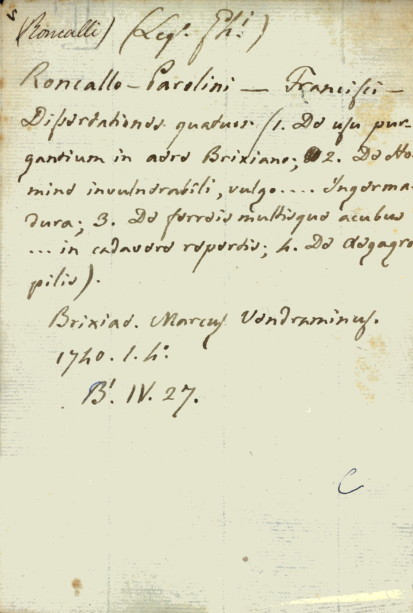 (Roncalli) (Leg. Ghi.)
Roncallo - Parolini — Francisci -
Dissertationes quatuor (1. De usu pur-
gantium in aere Brixiano; 2. De Ho-
mine invulnerabili, vulgo .... Ingerma-
dura; 3. De ferreis multisque acubus
... in cadavere repertis; 4. De Aegagro-
pilis).
Brixiae. Marcus Vendraminus.
1740. f. 4°.
B!. IV. 27.
C